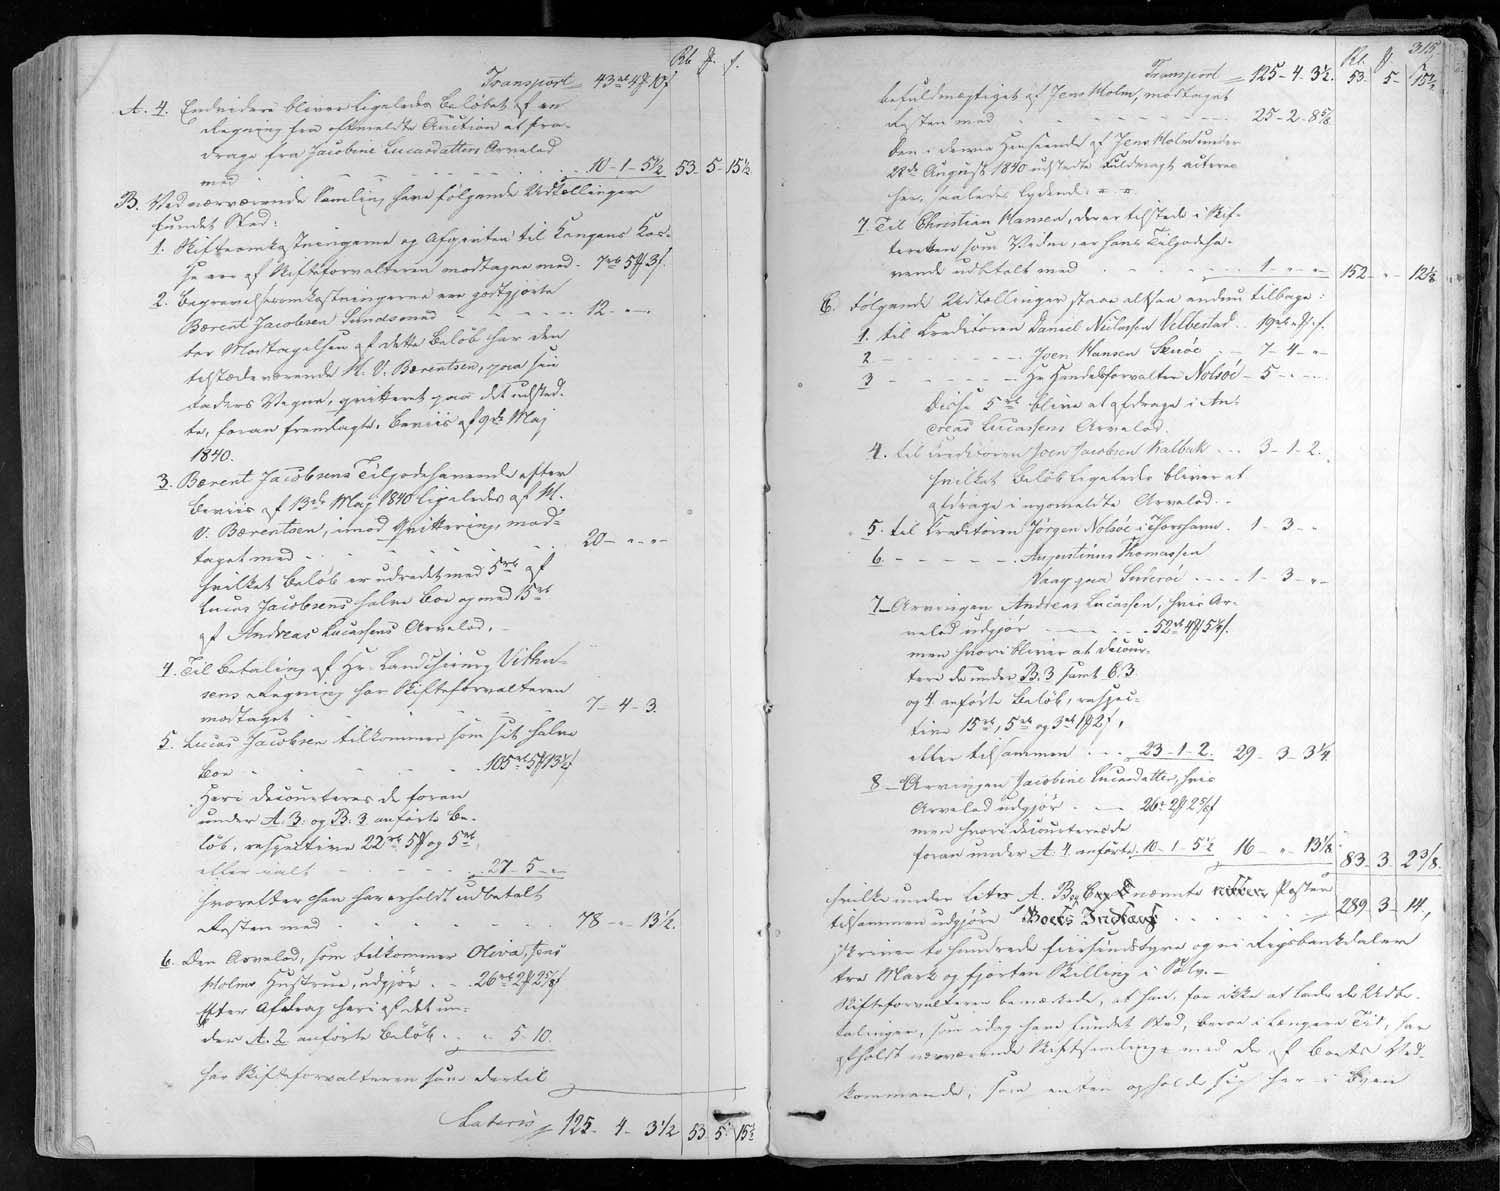 Rb ꝭ. s.
Transport 43 rb 4 ꝭ 10 s
A. 4. Endvidere bliver ligeledes Beløbet af en
Regning fra ommeldte Auction at fra-
drage fra Jacobine Lucasdatters Arvelod
med - - - - - - 10 - 1 - 5 1/2 53 - 5 - 15 1/2
B. Ved nærværende Samling have følgende Udtællinger
fundet Sted:
1. Skifteomkostningerne og Afgivten til Kongens Kas-
se ere af Skifteforvalteren modtagne med - 7 rb 5 ꝭ 3 s.
2. Begravelsesomkostningerne ere godtgjorte
Bærent Jacobsen Sundsmed - - - - - 12 - " - "
for Modtagelsen af dette Beløb har den
tilstedeværende H. V. Bærentsen, paa sin
Faders Vegne, qvitteret paa det udsted-
te, foran fremlagte, Beviis af 9de Maj
1840.
3. Bærent Jacobsens Tilgodehavende efter
Beviis af 13de Maj 1840 ligeledes af H.
V. Bærentsen, imod Qvittering, mod-
taget med - - - - - - - 20 - " - "
hvilket Beløb er udredet med 5 rb af
Lucas Jacobsens halve Boe og med 15 rb
af Andreas Lucassens Arvelod. -
4. Til Betaling af Hr. Landchirurg
Regning har Skifteforvalteren
modtaget - - - - - 7 - 4 - 3.
5. Lucas Jacobsen tilkommer som sit halve
Boe - - - - - 105 rb 5 ꝭ 13 1/2 s
Heri decourteres de foran
under A. 3. og B. 3. anførte Be-
løb, respective 22 rb 5 ꝭ og 5 rb,
eller ialt - - - - 27 - 5 - "
hvorefter han har erholdt udbetalt
Resten med - - - - - - 78 - " - 13 1/2.
6. Den Arvelod, som tilkommer Oliva, Jens
Holms Hustrue, udgjør - . 26 rb 2 ꝭ 2 5/8 s
Efter Afdrag heri af det un-
der A. 2 anførte Beløb . . " 5 - 10.
har Skifteforvalteren som dertil
Lateris 125 - 4 - 3 1/2 53 - 5 - 15 1/2
315
Rb. ꝭ. s
Transport 125 - 4 - 3 1/2. 53 - 5 - 15 1/2
befuldmægtiget af Jens Holm, modtaget
Resten med - - - - - - 25 - 2 - 8 5/8
den i denne Henseende af Jens Holm under
28de August 1840 udstedte Fuldmagt acteres
her, saaledes lydende: " . " .
7. Til Christian Hansen, der er tilstede i Skif-
teretten som Vidne, er hans Tilgodeha-
vende udbetalt med - - - - - 1 - " - " 152 - " - 12 1/8
C. Følgende Udtællinger staae altsaa endnu tilbage:
1. til Creditoren Daniel Niclassen Velbestad . . 19 rb " ꝭ " s.
2 - - - - - - - Joen Hansen Skuøe - - 7 - 4 - "
3 - - - - - - - Hr. Handelsforvalter Nolsøe - 5 - " - "
Disse 5 rb blive at afdrage i An-
dreas Lucassens Arvelod.
4. til Creditoren Joen Jacobsen Kalbak - - 3 - 1 - 2.
hvilket Beløb ligeledes bliver at
afdrage i nysmeldte Arvelod. -
5. til Creditoren Jørgen Nolsøe i Thorshavn . 1 - 3 - "
6. - - - - - - Augustinus Thomassen
Vaag paa Suderøe - - - - 1 - 3 - "
7 - Arvingen Andreas Lucassen, hvis Ar-
velod udgjør - - - 52 rb 4 ꝭ 5 1/4 s.
men hvori bliver at decour-
tere de under B. 3 samt C. 3
og 4 anførte Beløb, respec-
tive 15 rb, 5 rb og 3 rb 1 ꝭ 2 s,
eller tilsammen . . . 23 - 1 - 2. 29 - 3 - 3 1/4.
8 - Arvingen Jacobine Lucasdatter, hvis
Arvelod udgjør . - 26 rb 2 ꝭ 2 5/8 s
men hvori decourteres de
foran under A. 4. anførte 10 - 1 - 5 1/2 16 - " - 13 1/8. 83 - 3 - 2 3/8.
hvilke under Litr. A. B. nævnte Poster
tilsammen udgjøre Boets Indtægt - - - - - 289 - 3 - 14.,
skriver to hundrede fiirsindstyve og ni Rigsbankdaler
tre Mark og fjorten Skilling i Sølv. -
Skifteforvalteren bemærkede, at han, for ikke at lade de Udbe-
talinger, som idag have fundet Sted, beroe i længere Tid, har
afholdt nærværende Skiftesamling med de af Boets Ved-
kommende, som enten opholde sig her i Byen